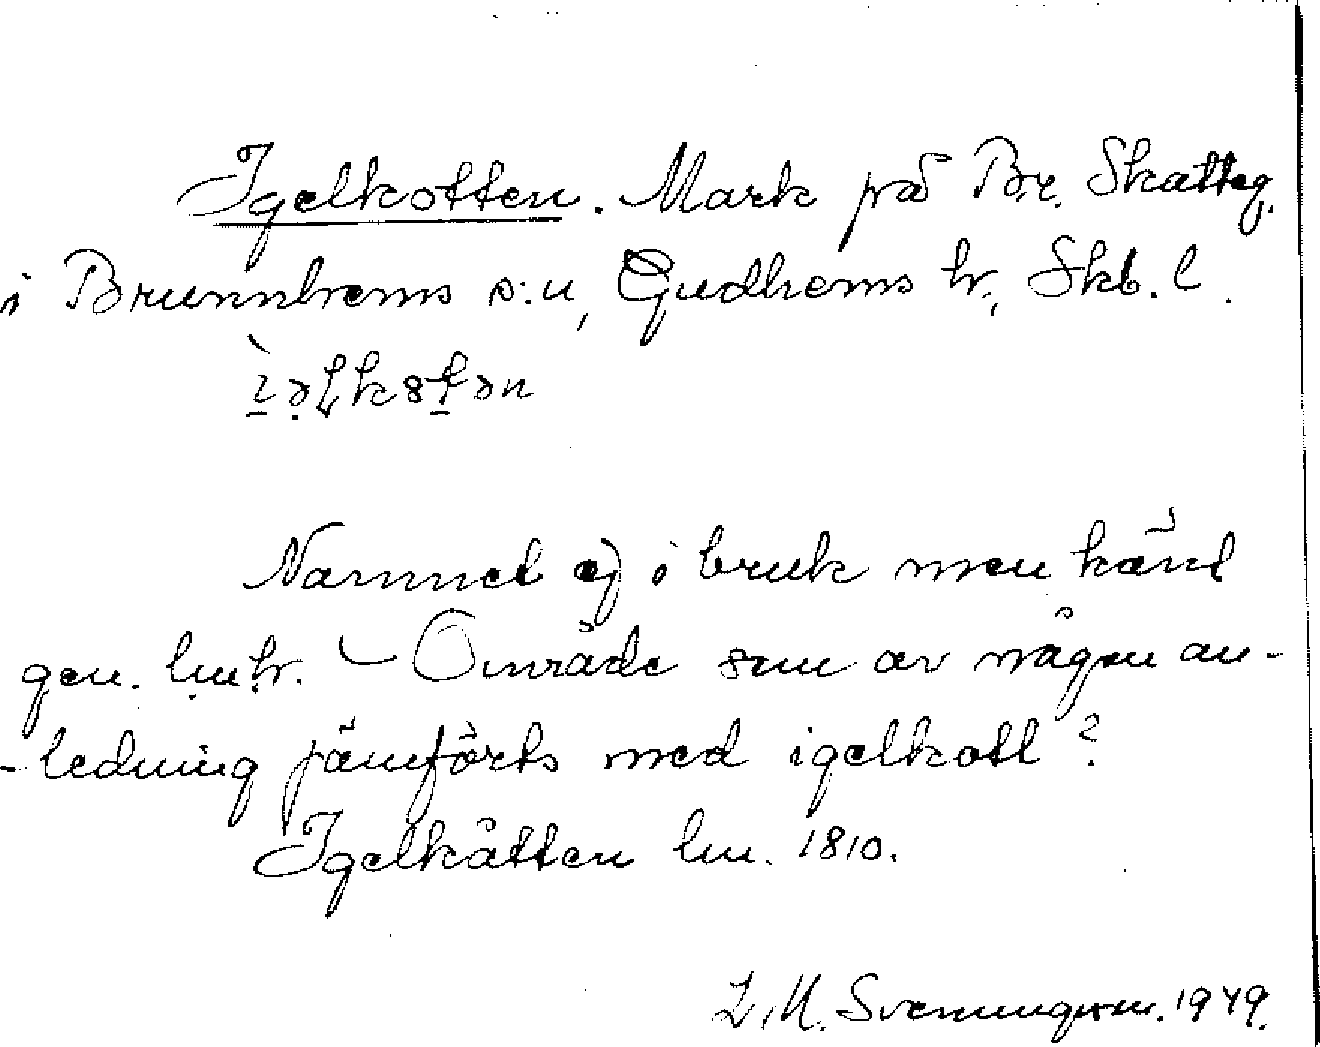 Igelkotten. Mark på Br. Skatteg.
i Brunnhems s:n, Gudhems hr, Skb. l.
Namnet ej i bruk men känt
gen. lmhr. – Område som av någon an-
-ledning jämförts med igelkott?
Igelkåtten lm. 1810.
L. M. Svenungsson. 1949.